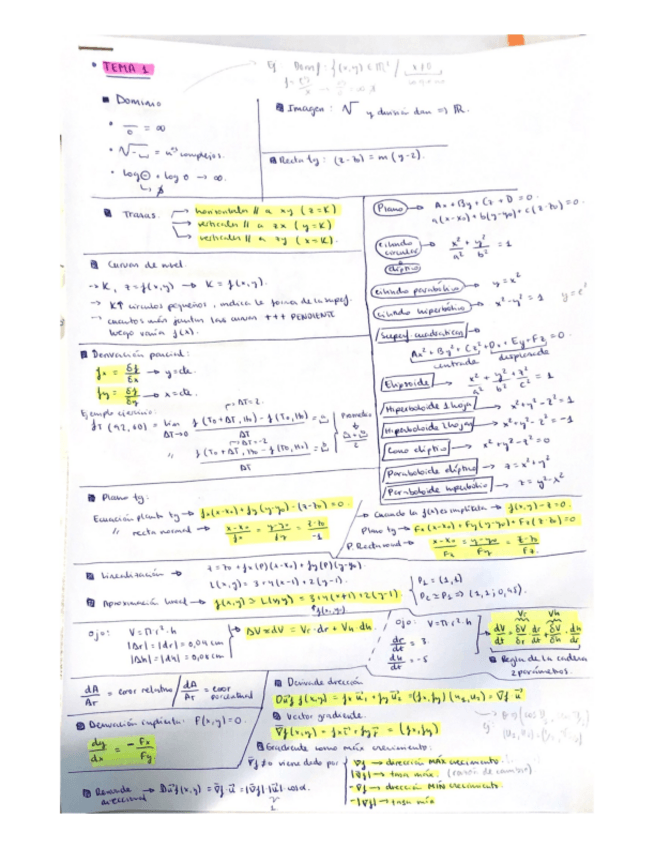 • TEMA 1
Ej: Dom f: {(x,y) ∈ ℝ² / x≠0
■ Dominio
• — = ∞
0
• √-... = nos complejos.
• log 0 → ∞.
■ Imagen: √ y división dan => ℝ.
■ Recta tg: (z-z0) = m(y-2).
■ Trazas.
→ horizontales // a xy (z=k)
→ verticales // a zx (y=k)
→ verticales // a zy (x=k).
■ Curvas de nivel.
→ K, z=f(x,y) → K = f(x,y).
→ K↑ círculos pequeños, indica la forma de la superf.
→ cuanto más juntas las curvas +++ PENDIENTE
luego varía f(x).
■ Derivación parcial:
fx = δf/δx → y=cte.
fy = δf/δy → x=cte.
Ejemplo ejercicio: ΔT=2.
fT (92,60) = lim ΔT→0 f(T0+ΔT, H0) - f(T0, H0) / ΔT
ΔT=-2
" f(T0+ΔT, H0) - f(T0, H0) / ΔT
Promedio
Plano → Ax+By+Cz+D=0.
a(x-x0)+b(y-y0)+c(z-z0)=0.
cilindro circular → x²/a² + y²/b² = 1
elíptico
cilindro parabólico → y=x²
cilindro hiperbólico → x²-y²=1
Superf. cuadráticas →
Ax²+By²+Cz²+Dx+Ey+Fz=0.
centrada desplazada
Elipsoide → x²/a² + y²/b² + z²/c² = 1
Hiperboloide 1 hoja → x²+y²-z²=1
Hiperboloide 2 hojas → x²+y²-z²=-1
Cono elíptico → x²+y²-z²=0
Paraboloide elíptico → z=x²+y²
Paraboloide hiperbólico → z=y²-x²
■ Plano tg:
Ecuación plano tg → fx(x-x0)+fy(y-y0)-(z-z0)=0.
" recta normal → x-x0/fx = y-y0/fy = z-z0/-1
→ Cuando la f(x) es implícita → f(x,y)-z=0.
Plano tg → Fx(x-x0)+Fy(y-y0)+Fz(z-z0)=0
P. Recta normal → x-x0/Fx = y-y0/Fy = z-z0/Fz
■ Linealización → z=z0+fx(P)(x-x0)+fy(P)(y-y0).
L(x,y)=3+4(x-1)+2(y-1).
■ Aproximación lineal → f(x,y) ≃ L(x,y)=3+4(x+1)+2(y-1)
Ojo: V=πr²·h
|Δr|=|dr|=0,04cm
|Δh|=|dh|=0,08cm
→ ΔV≈dV = Vr·dr+Vh·dh.
Ojo: V=πr²·h
dr/dt = 3.
dh/dt = -5
Vr Vh
dV/dt = δV/δr dr/dt + δV/δh · dh/dt
■ Regla de la cadena
2 parámetros.
dA/AT = error relativo / dA/AT = error porcentual
■ Derivación implícita: F(x,y)=0.
dy/dx = -Fx/Fy
■ Derivada dirección
Dūf f(x,y) = fx u1 + fy u2 = (fx,fy)(u1,u2) = ∇f ū
■ Vector gradiente.
∇f(x,y) = fx i + fy j = (fx,fy)
■ Gradiente como máx crecimiento:
∇f≠0 viene dado por
∇f → dirección MÁX crecimiento.
|∇f| → tasa máx. (razón de cambio)
-∇f → dirección MIN crecimiento
-|∇f| → tasa mín
■ Derivada direccional → Dūf(x,y) = ∇f·ū = |∇f||ū|·cosα.
1